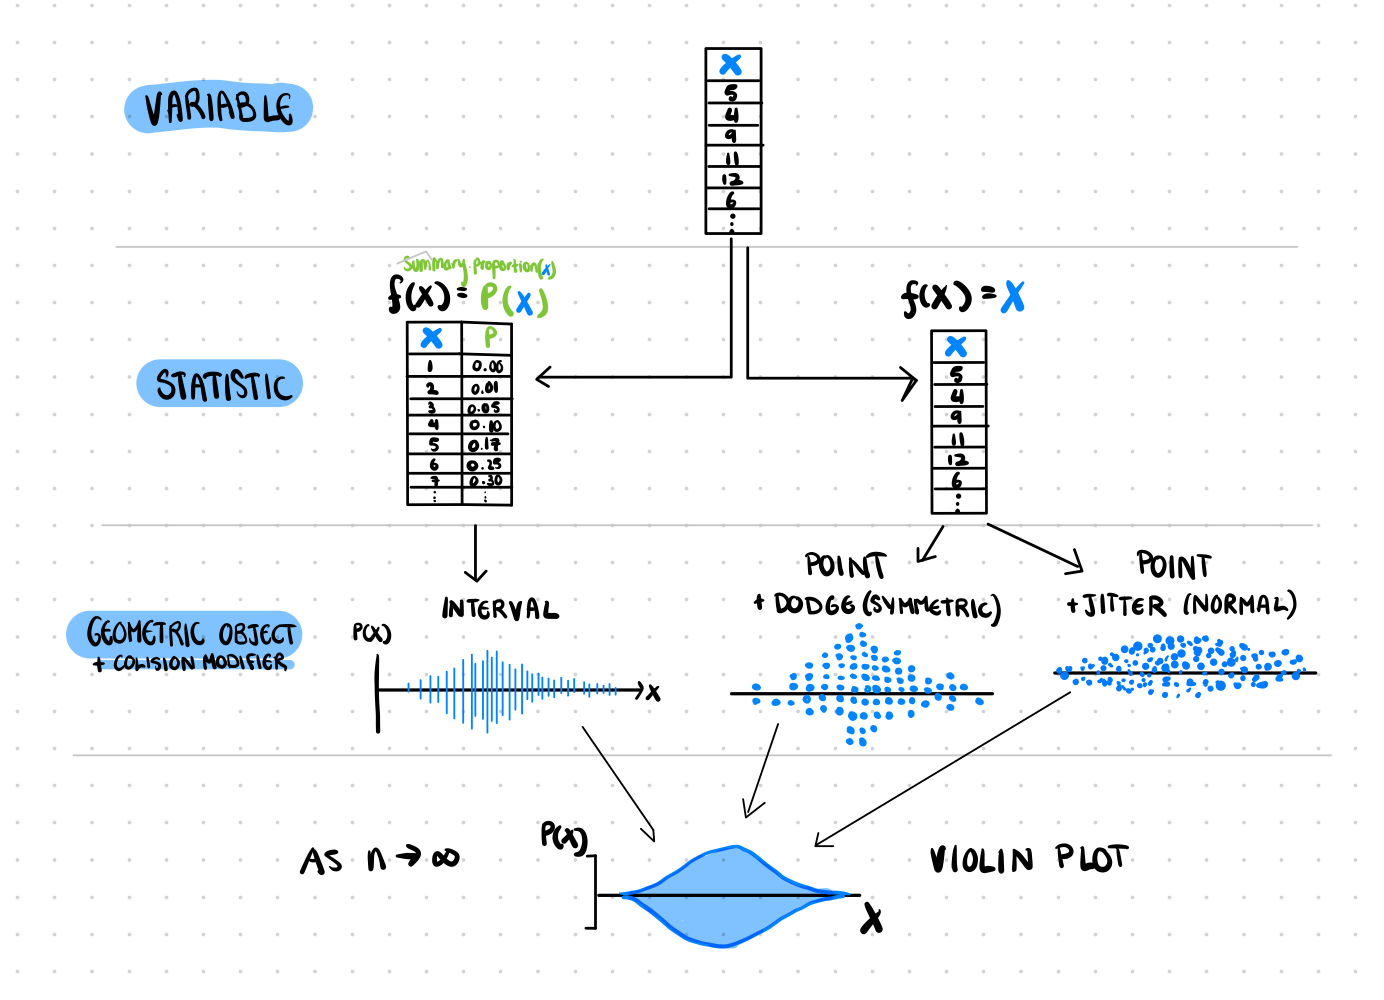 VARIABLE
X
5
4
9
11
12
6
⋮
STATISTIC
Summary.Proportion(x)
f(X) = P(X)
X P
1 0.00
2 0.01
3 0.05
4 0.10
5 0.17
6 0.25
7 0.30
⋮ ⋮
f(X) = X
X
5
4
9
11
12
6
⋮
GEOMETRIC OBJECT
+ COLISION MODIFIER
INTERVAL
P(X)
X
POINT
+ DODGE (SYMMETRIC)
POINT
+ JITTER (NORMAL)
AS n → ∞
P(X)
X
VIOLIN PLOT